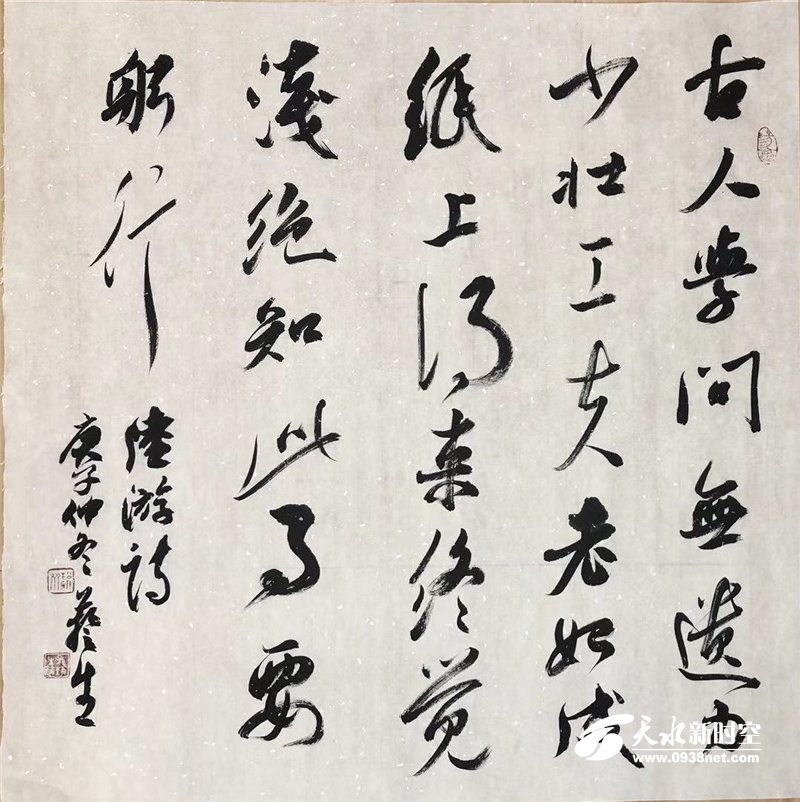 古人學問無遺力
少壯工夫老始成
紙上得来终觉
淺绝知此事要
躬行
陸游詩
庚子仲冬藝生
天水新时空
www.0938net.com